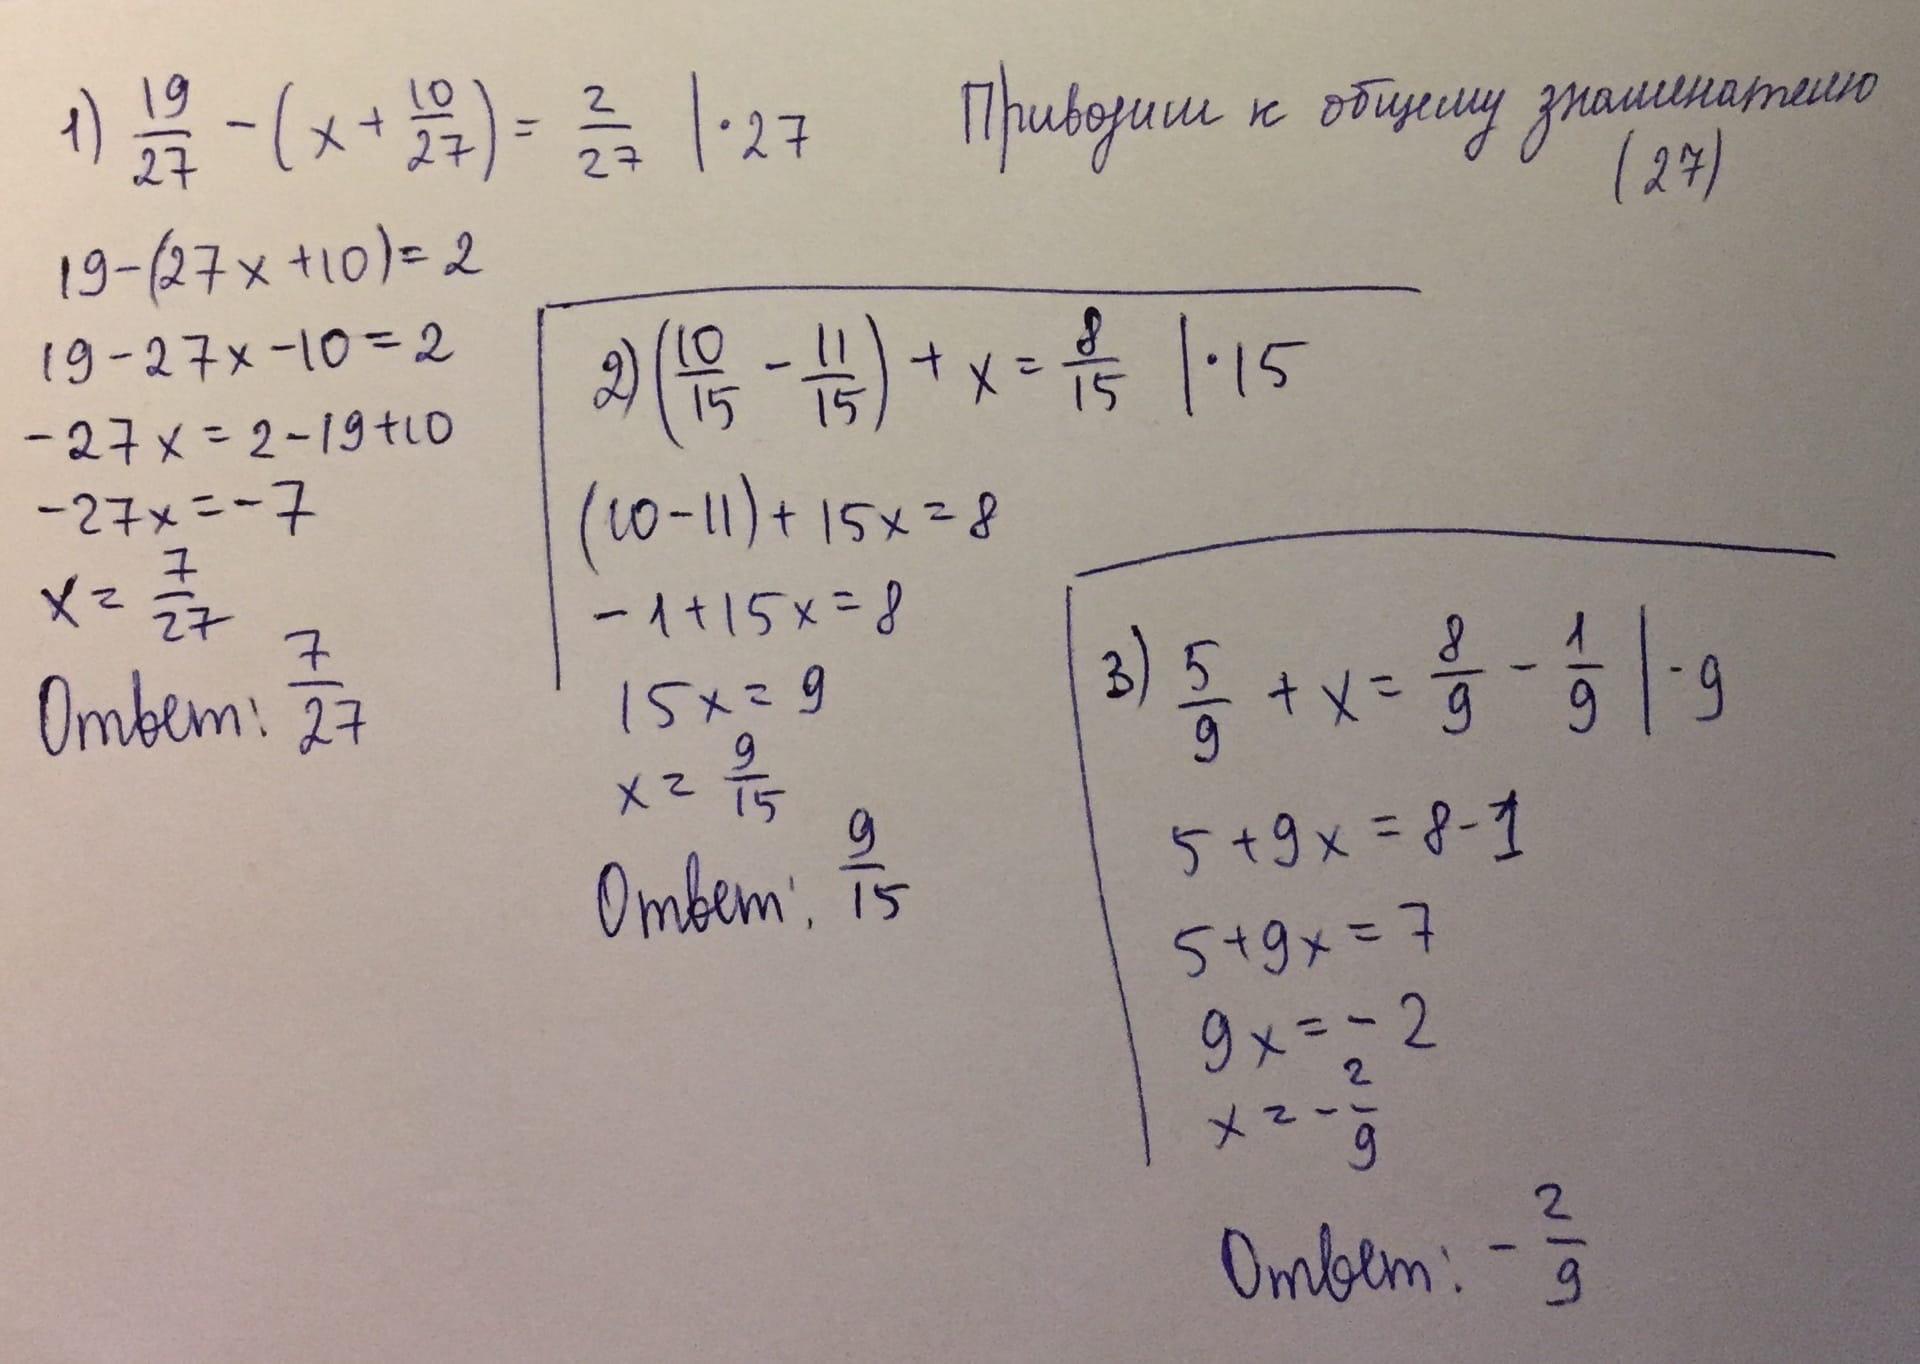 1) 19/27 - (x + 10/27) = 2/27 | · 27
Приводим к общему знаменателю
(27)
19-(27x+10)=2
19-27x-10=2
-27x=2-19+10
-27x=-7
x= 7/27
Ответ: 7/27
2) (10/15 - 11/15) + x = 8/15 | · 15
(10-11)+15x=8
-1+15x=8
15x=9
x= 9/15
Ответ: 9/15
3) 5/9 + x = 8/9 - 1/9 | · 9
5+9x=8-1
5+9x=7
9x=-2
x=-2/9
Ответ: -2/9